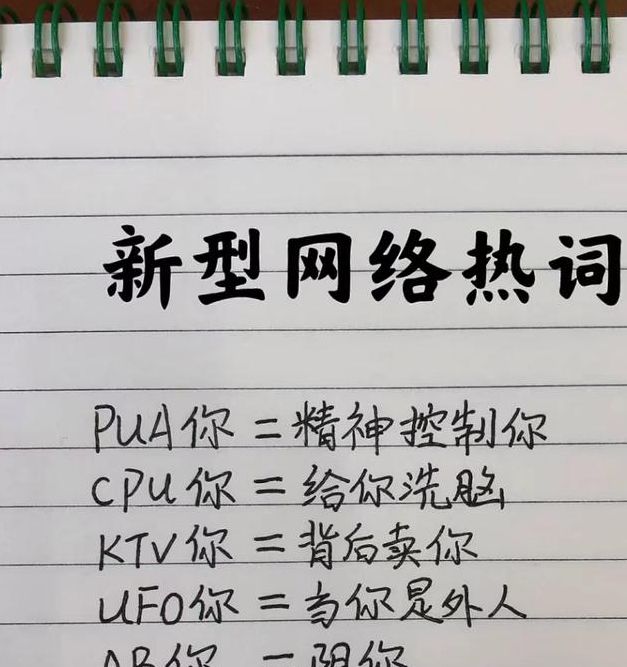 新型网络热词
PUA你 = 精神控制你
CPU你 = 给你洗脑
KTV你 = 背后卖你
UFO你 = 当你是外人
你 = 阴你